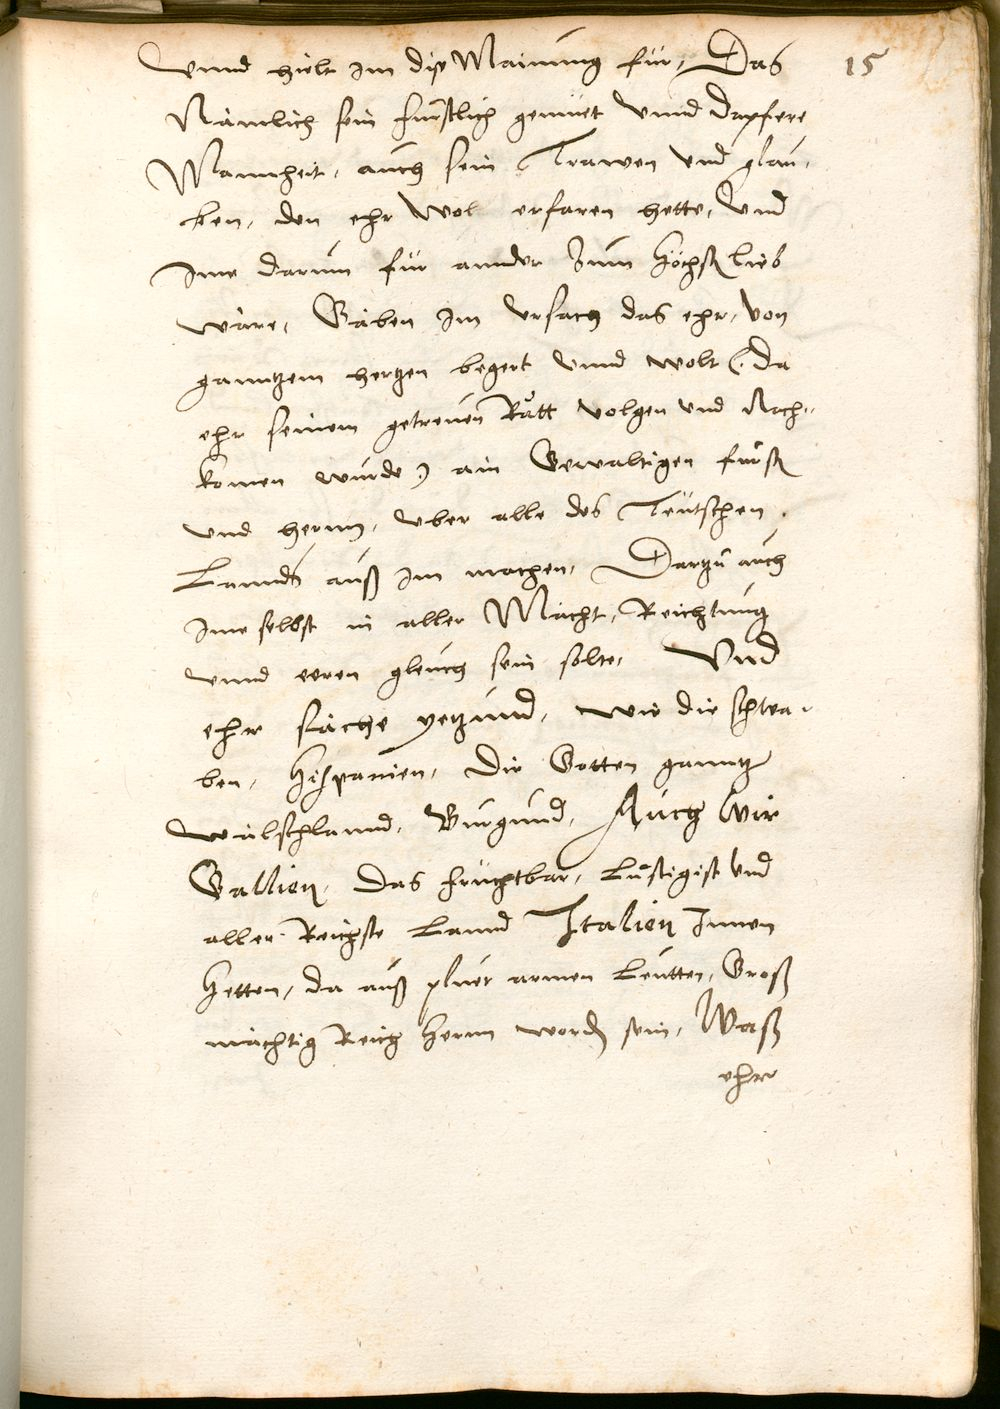 15
vnnd hielt im diß Mainung für, Das
Nämlich sein fürstlich gemüet vnnd dapffere
Mannheit, auch sein Trawen vnd glau,
ben, den ehr wol erfaren hette, vnd
Ime darum für annder Zum höchst lieb
wäre, Gäben im vrsach das ehr, von
ganntzem hertzen begert vnnd wolt (: da
ehr seinem getreuen Rätt volgen vnd Nach,,
komen wurde :) ain Gewaltigen fürst
vnd hernn, vber alle des Teutschen
Lannds auß im machen, Dartzu auch
Ime selbst in aller Macht, Reichtung
vnnd eeren gleich sein solte, Vnd
ehr säche yetzund, wie die schwa,
ben, Hispanien, die Gotten ganntz
wälschlannd, Burgund, Auch wir
Gallien, das fruchtbar, Lustigist vnd
aller Reichste Lannd Italien Innen
hetten, da auß armen Leutten, Groß
mächtig Reich hernn word sein, Waß
ehr